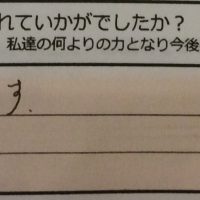 れていかがでしたか？
私達の何よりの力となり今後
す.